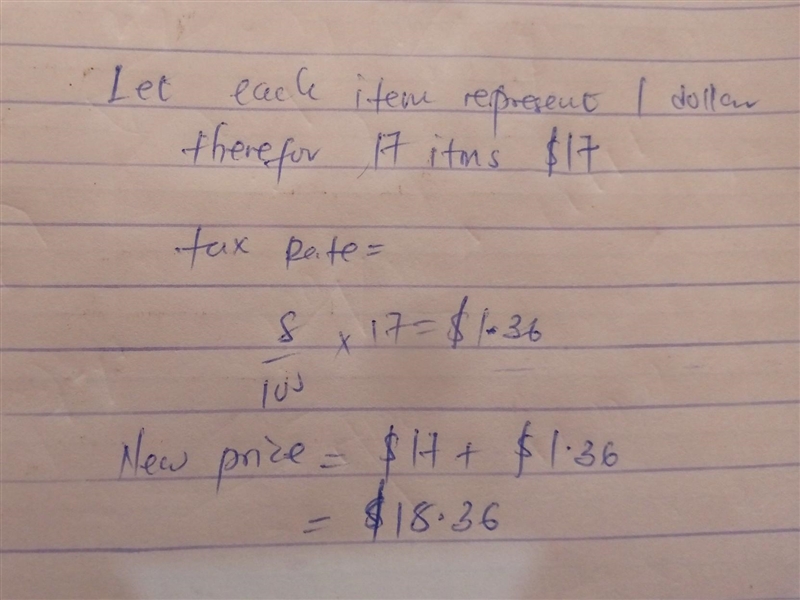 Let each item represent 1 dollar
therefor 17 itms $17
tax rate=
8/100 × 17 = $1.36
New price = $17 + $1.36
= $18.36